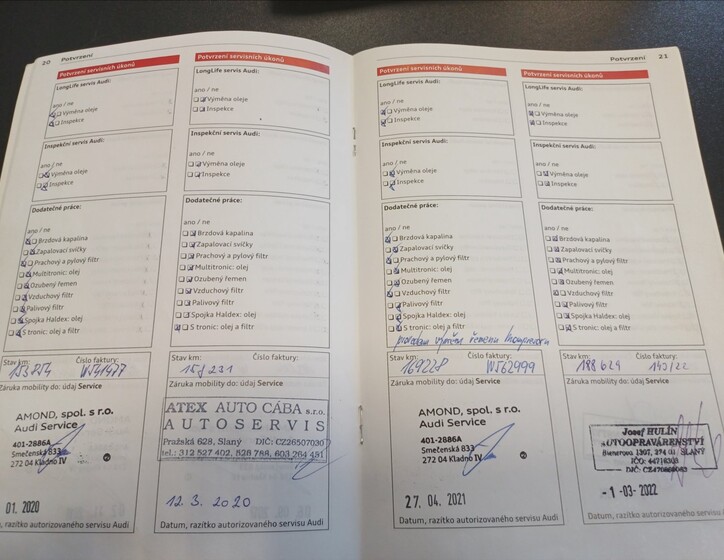 20 Potvrzení
Potvrzení servisních úkonů
LongLife servis Audi:
ano / ne
Výměna oleje
Inspekce
Inspekční servis Audi:
ano / ne
Výměna oleje
Inspekce
Dodatečné práce:
ano / ne
Brzdová kapalina
Zapalovací svíčky
Prachový a pylový filtr
Multitronic: olej
Ozubený řemen
Vzduchový filtr
Palivový filtr
Spojka Haldex: olej
S tronic: olej a filtr
Stav km: Číslo faktury:
153254
Záruka mobility do: údaj Service
AMOND, spol. s r.o.
Audi Service
401-2886A
Smečenská 833
272 04 Kladno IV
01. 2020
, razítko autorizovaného servisu Audi
Potvrzení servisních úkonů
LongLife servis Audi:
ano / ne
Výměna oleje
Inspekce
Inspekční servis Audi:
ano / ne
Výměna oleje
Inspekce
Dodatečné práce:
ano / ne
Brzdová kapalina
Zapalovací svíčky
Prachový a pylový filtr
Multitronic: olej
Ozubený řemen
Vzduchový filtr
Palivový filtr
Spojka Haldex: olej
S tronic: olej a filtr
Stav km: Číslo faktury:
158 231
Záruka mobility do: údaj Service
ATEX AUTO CÁBA s.r.o.
AUTOSERVIS
Pražská 628, Slaný DIČ: CZ26507030
tel.: 312 527 402, 828 788, 603 264 481
12. 3. 2020
Datum, razítko autorizovaného servisu Audi
Potvrzení 21
Potvrzení servisních úkonů
LongLife servis Audi:
ano / ne
Výměna oleje
Inspekce
Inspekční servis Audi:
ano / ne
Výměna oleje
Inspekce
Dodatečné práce:
ano / ne
Brzdová kapalina
Zapalovací svíčky
Prachový a pylový filtr
Multitronic: olej
Ozubený řemen
Vzduchový filtr
Palivový filtr
Spojka Haldex: olej
S tronic: olej a filtr
výměna řemenu kompresoru
Stav km: Číslo faktury:
169228 W562999
Záruka mobility do: údaj Service
AMOND, spol. s r.o.
Audi Service
401-2886A
Smečenská 833
272 04 Kladno IV
27. 04. 2021
Datum, razítko autorizovaného servisu Audi
Potvrzení servisních úkonů
LongLife servis Audi:
ano / ne
Výměna oleje
Inspekce
Inspekční servis Audi:
ano / ne
Výměna oleje
Inspekce
Dodatečné práce:
ano / ne
Brzdová kapalina
Zapalovací svíčky
Prachový a pylový filtr
Multitronic: olej
Ozubený řemen
Vzduchový filtr
Palivový filtr
Spojka Haldex: olej
S tronic: olej a filtr
Stav km: Číslo faktury:
188 629 143/22
Záruka mobility do: údaj Service
Josef HULÍN
AUTOOPRAVÁRENSTVÍ
1307, 274 01 SLANÝ
IČO: 44716303
DIČ:
-1 -03- 2022
Datum, razítko autorizovaného servisu Audi